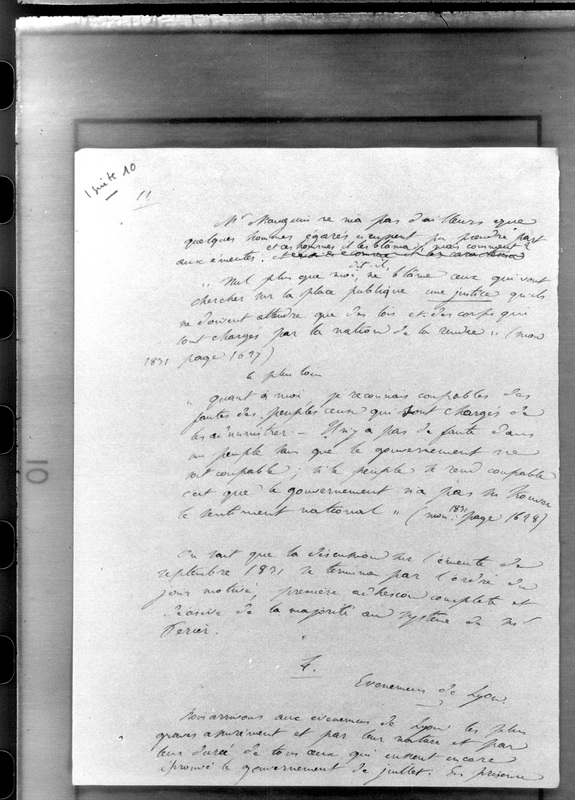 1 suite 10
11
Mr Mauguin ne nia pas d'ailleurs que
quelques hommes égarés n'eussent pu prendre part
et ces hommes il les blâma, mais comment ?
aux émeutes.
dit-il,
"Nul plus que moi, ne blâme ceux qui vont
chercher sur la place publique une justice qu'ils
ne doivent attendre que des lois et des corps qui
sont chargés par la nation de la rendre" (mon
1831 page 1627)
& plus loin
"quant à moi, je reconnais coupables des
fautes des peuples ceux qui sont chargés de
les administrer - Il n'y a pas de faute dans
un peuple sans que le gouvernement ne
soit coupable ; si le peuple se rend coupable
c'est que le gouvernement n'a pas su trouver
le sentiment national" (mon. 1831 page 1628)
On sait que la discussion sur l'émeute de
septembre 1831 se termina par l'ordre du
jour motivé, première adhésion complète et
décisive de la majorité au système de Mr
Périer.
Evenemens de Lyon
Nous arrivons aux évènemens de Lyon les plus
graves assurément et par leur nature et par
leur durée de tous ceux qui eussent encore
éprouvé le gouvernement de juillet. En présence